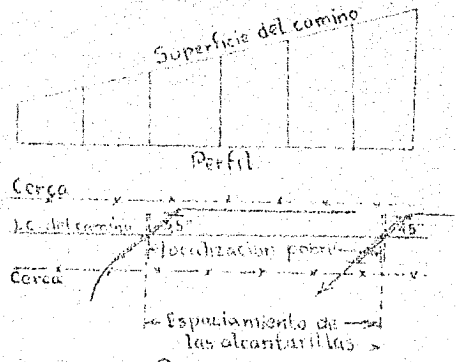 Superficie del camino
Perfil
Cerca
L.C. del camino
45°
45°
localización pobre
Cerca
Espaciamiento de
las alcantarillas